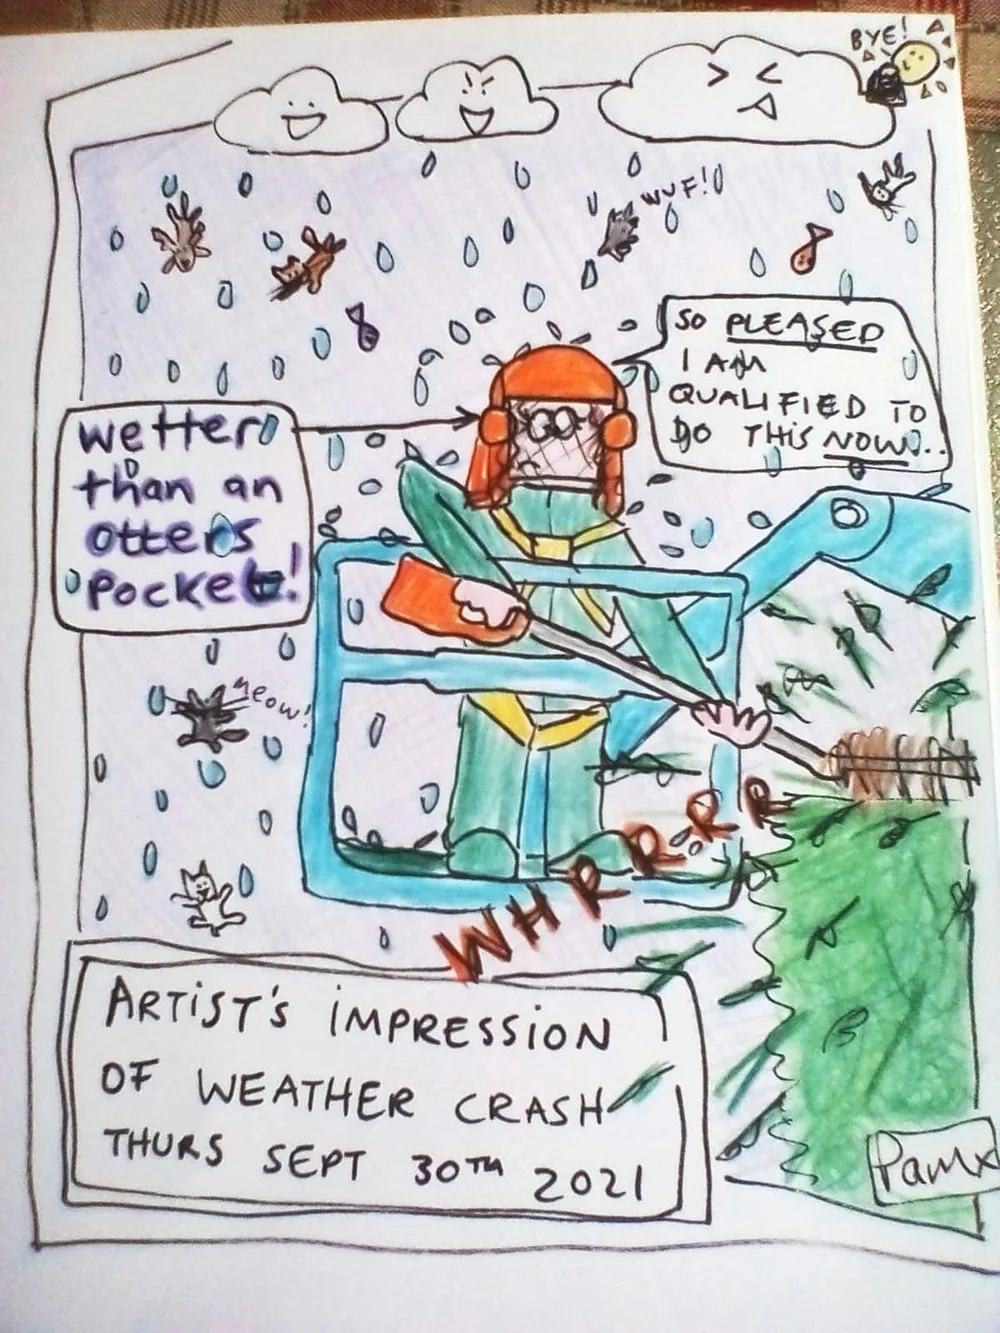 BYE!
WUF!
SO PLEASED
I AM
QUALIFIED TO
DO THIS NOW..
wetter
than an
otters
pocket!
meow!
WHRRRRR
ARTIST'S IMPRESSION
OF WEATHER CRASH
THURS SEPT 30TH 2021
Pamx